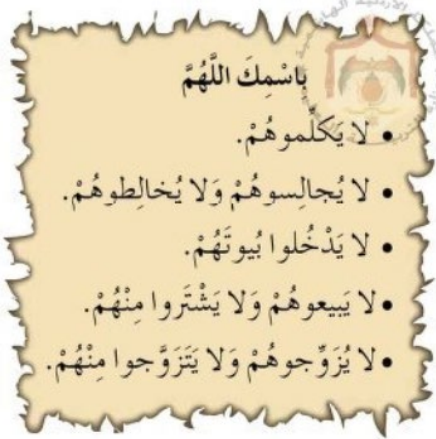 بِاسْمِكَ اللَّهُمَّ
• لا يُكَلِّموهُمْ.
• لا يُجالِسوهُمْ وَلا يُخالِطوهُمْ.
• لا يَدْخُلوا بُيوتَهُمْ.
• لا يَبيعوهُمْ وَلا يَشْتَروا مِنْهُمْ.
• لا يُزَوِّجوهُمْ وَلا يَتَزَوَّجوا مِنْهُمْ.